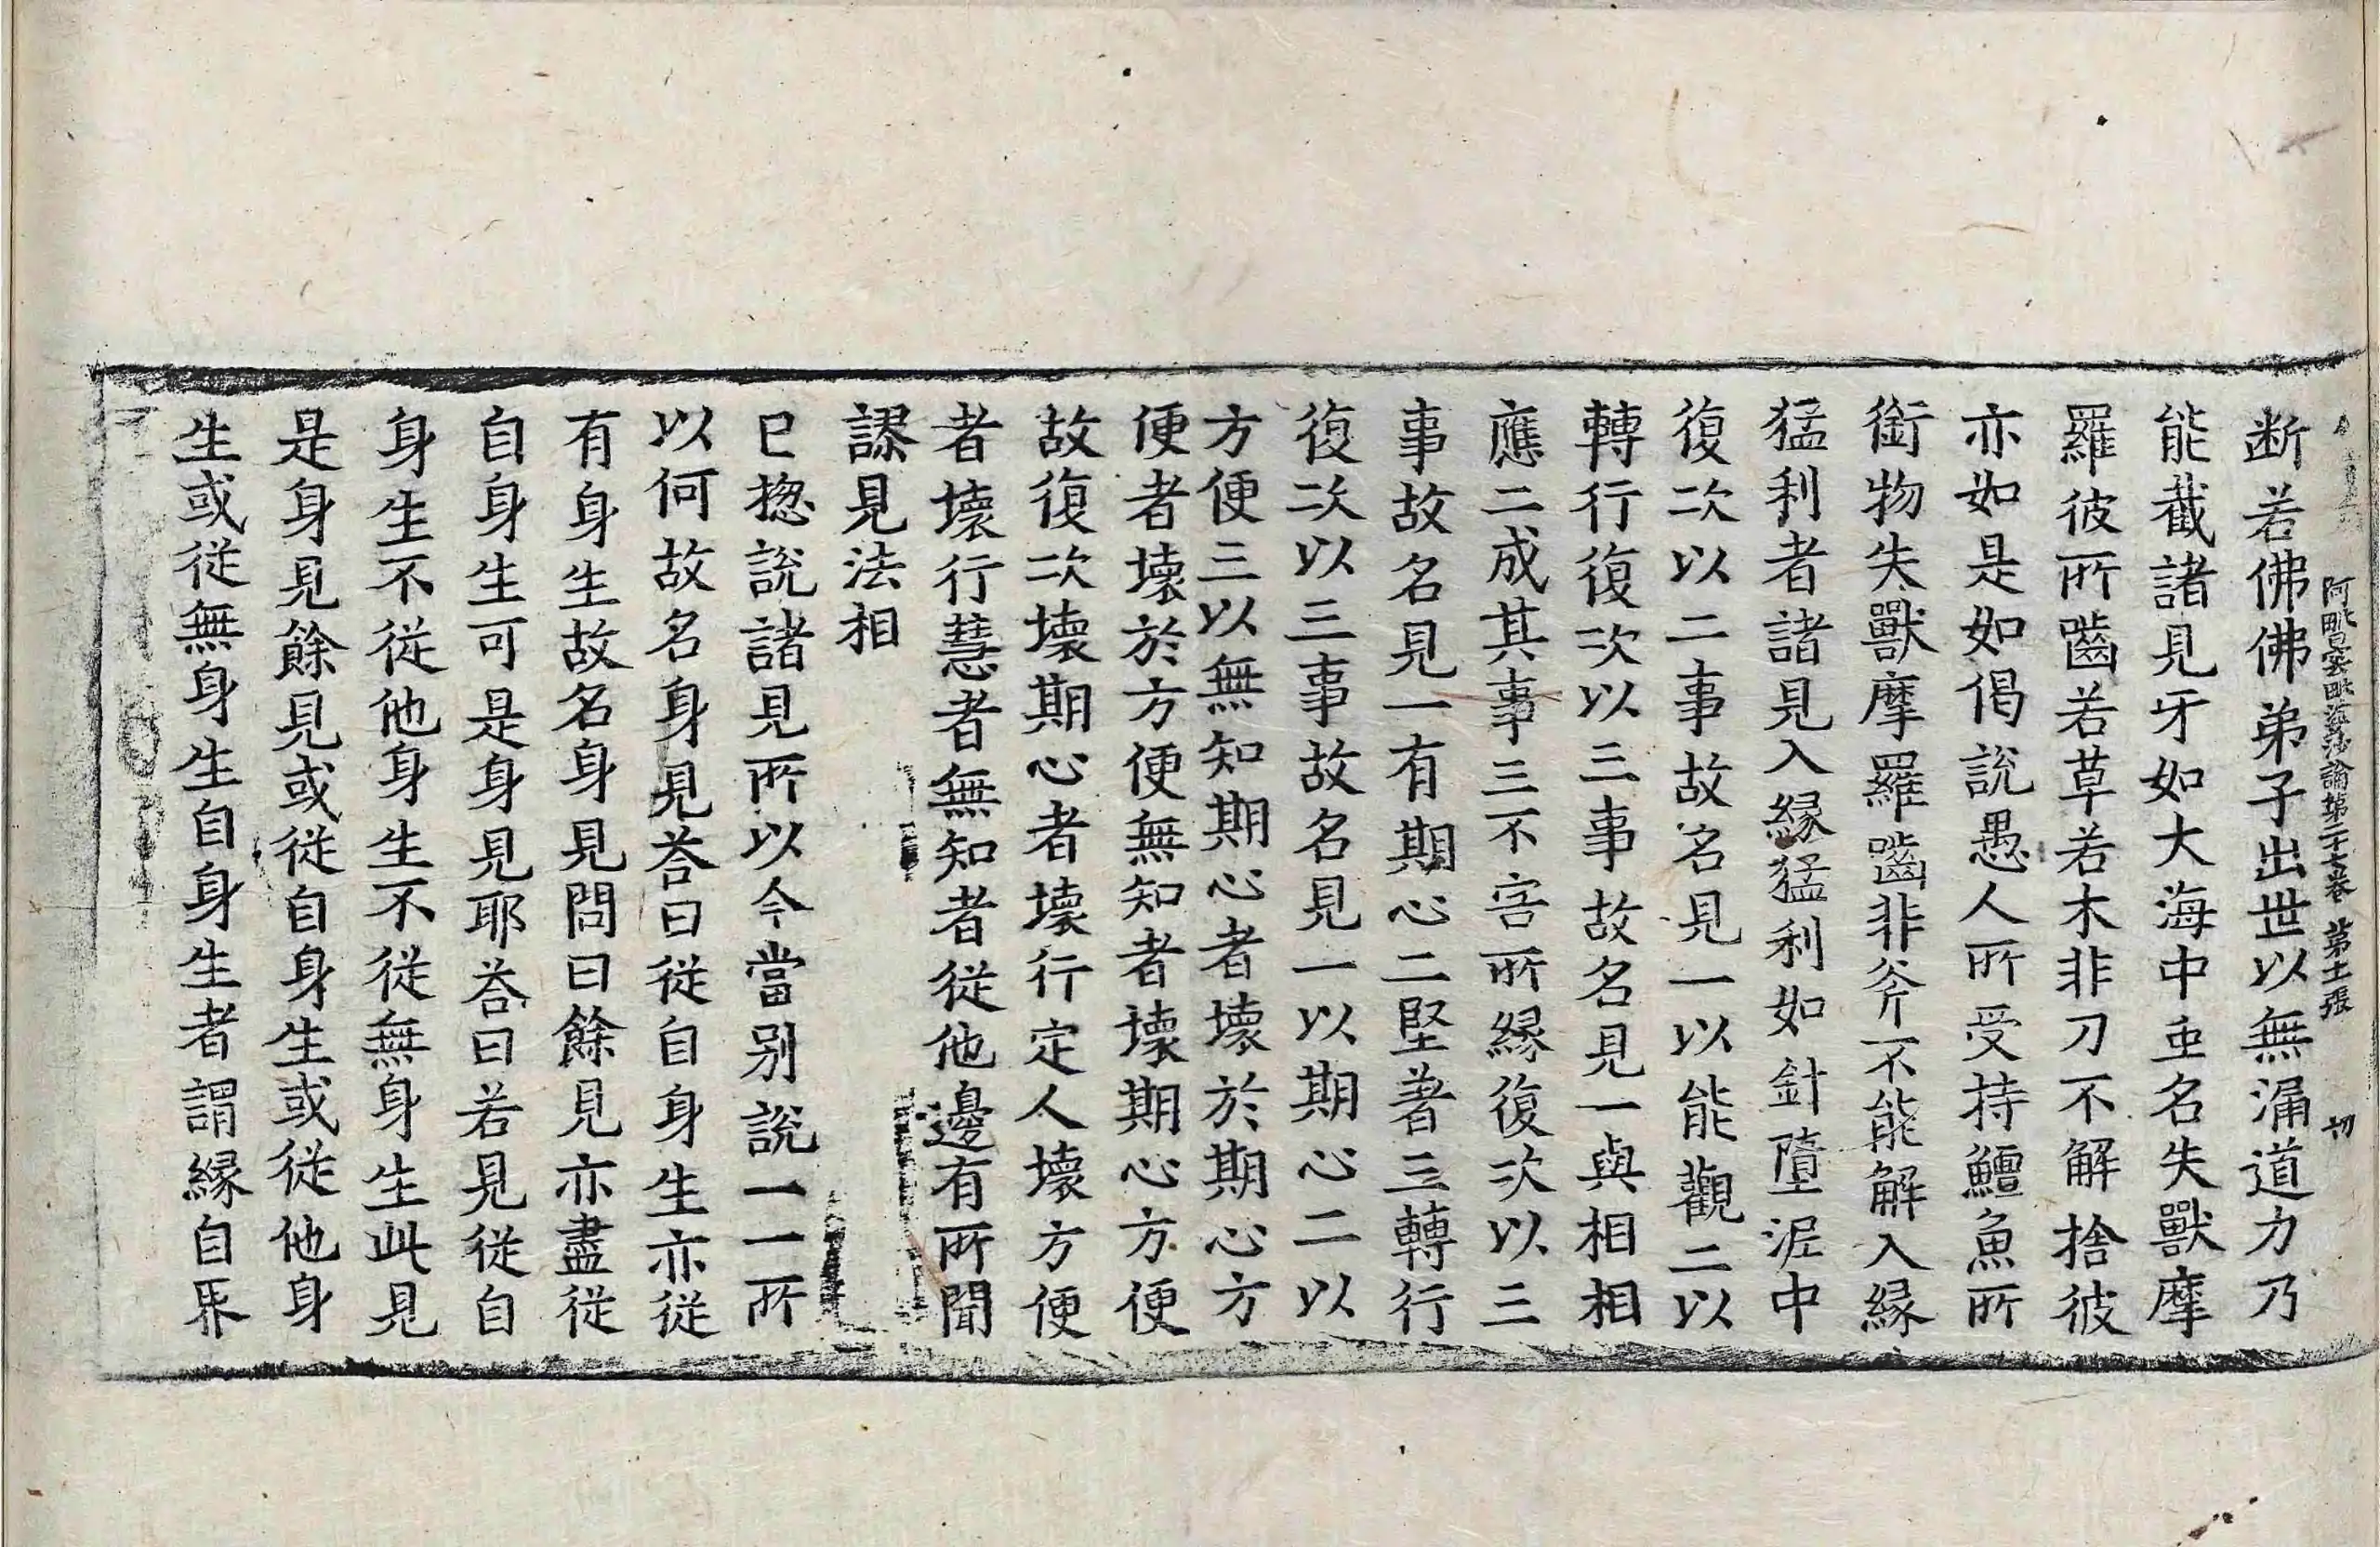 阿毗曇毗婆沙論第二十七卷 第十一張 切
断若佛佛弟子出世以無漏道力乃
能截諸見牙如大海中䖝名失獸摩
羅彼所齧若草若木非刀不解捨彼
亦如是如偈說愚人所受持鱣魚所
銜物失獸摩羅齧非斧不能解入緣
猛利者諸見入緣猛利如針墮泥中
復次以二事故名見一以能觀二以
轉行復次以三事故名見一與相相
應二成其事三不害所緣復次以三
事故名見一有期心二堅著三轉行
復次以三事故名見一以期心二以
方便三以無知期心者壞於期心方
便者壞於方便無知者壞期心方便
故復次壞期心者壞行定人壞方便
者壞行慧者無知者從他邊有所聞
謬見法相
已揔說諸見所以今當別說一一所
以何故名身見荅曰從自身生亦從
有身生故名身見問曰餘見亦盡從
自身生可是身見耶荅曰若見從自
身生不從他身生不從無身生此見
是身見餘見或從自身生或從他身
生或從無身生自身生者謂緣自界